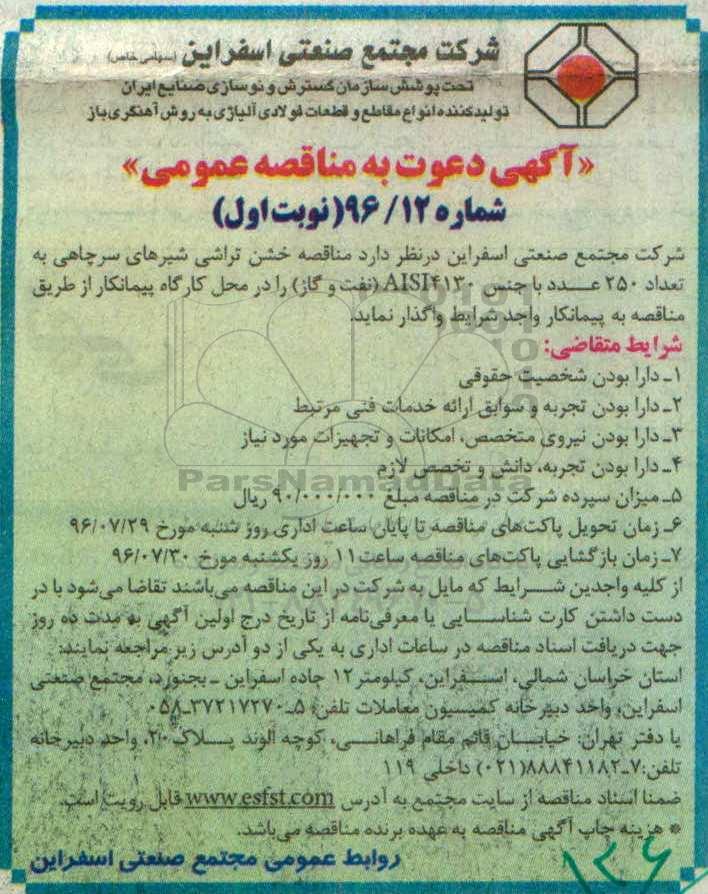 شرکت مجتمع صنعتی اسفراین (سهامی خاص)
تحت پوشش سازمان گسترش و نوسازی صنایع ایران
تولیدکننده انواع مقاطع و قطعات فولادی آلیاژی به روش آهنگری باز
«آگهی دعوت به مناقصه عمومی»
شماره ۹۶/۱۲ (نوبت اول)
شرکت مجتمع صنعتی اسفراین درنظر دارد مناقصه خشن تراشی شیرهای سرچاهی به
تعداد ۲۵۰ عدد با جنس AISI۴۱۳۰ (نفت و گاز) را در محل کارگاه پیمانکار از طریق
مناقصه به پیمانکار واجد شرایط واگذار نماید.
شرایط متقاضی:
۱ـ دارا بودن شخصیت حقوقی
۲ـ دارا بودن تجربه و سوابق ارائه خدمات فنی مرتبط
۳ـ دارا بودن نیروی متخصص، امکانات و تجهیزات مورد نیاز
۴ـ دارا بودن تجربه، دانش و تخصص لازم
ParsNamadData
۵ـ میزان سپرده شرکت در مناقصه مبلغ ۹۰/۰۰۰/۰۰۰ ریال
۶ـ زمان تحویل پاکت‌های مناقصه تا پایان ساعت اداری روز شنبه مورخ ۹۶/۰۷/۲۹
۷ـ زمان بازگشایی پاکت‌های مناقصه ساعت ۱۱ روز یکشنبه مورخ ۹۶/۰۷/۳۰
از کلیه واجدین شرایط که مایل به شرکت در این مناقصه می‌باشند تقاضا می‌شود با در
دست داشتن کارت شناسایی یا معرفی‌نامه از تاریخ درج اولین آگهی به مدت ده روز
جهت دریافت اسناد مناقصه در ساعات اداری به یکی از دو آدرس زیر مراجعه نمایند:
استان خراسان شمالی، اسفراین، کیلومتر ۱۲ جاده اسفراین ـ بجنورد، مجتمع صنعتی
اسفراین، واحد دبیرخانه کمیسیون معاملات تلفن: ۵ـ۳۷۲۱۷۲۷۰ـ۰۵۸
یا دفتر تهران: خیابان قائم مقام فراهانی، کوچه الوند پلاک ۲۰، واحد دبیرخانه
تلفن: ۷ـ۸۸۸۴۱۱۸۲(۰۲۱) داخلی ۱۱۹
ضمنا اسناد مناقصه از سایت مجتمع به آدرس www.esfst.com قابل رویت است.
* هزینه چاپ آگهی مناقصه به عهده برنده مناقصه می‌باشد.
روابط عمومی مجتمع صنعتی اسفراین